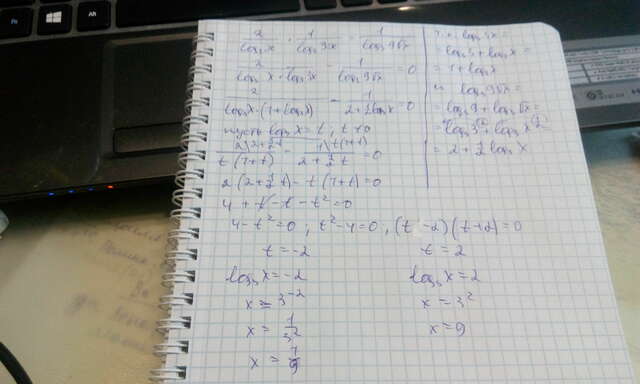 2/log₃x · 1/log₃3x = 1/log₃9√x
2/(log₃x · log₃3x) - 1/log₃9√x = 0
2/(log₃x·(1+log₃x)) - 1/(2+½log₃x) = 0
пусть log₃x = t, t≠0
2\2+½t / t(1+t) - 1\t(1+t) / 2+½t = 0
2(2+½t) - t(1+t) = 0
4 + t - t - t² = 0
4 - t² = 0, t² - 4 = 0, (t - 2)(t + 2) = 0
t = -2
log₃x = -2
x = 3⁻²
x = 1/3²
x = 1/9
t = 2
log₃x = 2
x = 3²
x = 9
log₃3x =
= log₃3 + log₃x =
= 1 + log₃x
и log₃9√x =
= log₃9 + log₃√x =
= log₃3² + log₃x^½ =
= 2 + ½ log₃x